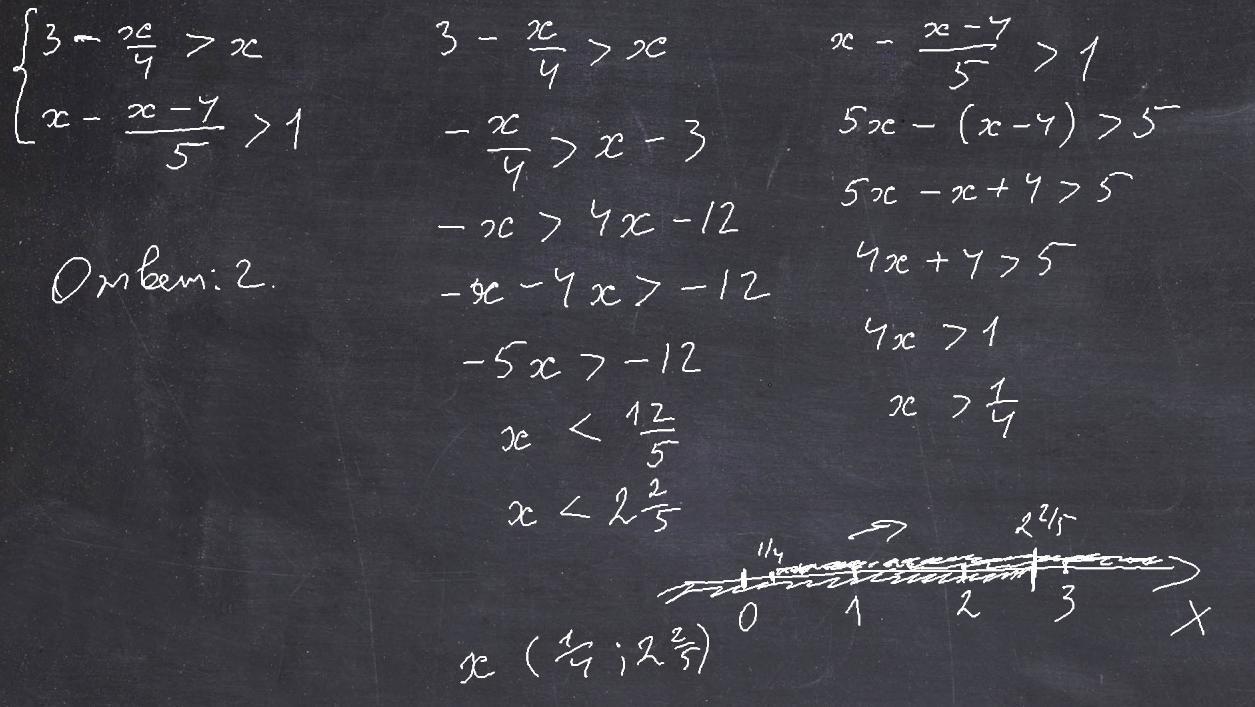 3 - x/4 > x
x - (x-4)/5 > 1
Ответ: 2.
3 - x/4 > x
-x/4 > x - 3
-x > 4x - 12
-x - 4x > -12
-5x > -12
x < 12/5
x < 2 2/5
x - (x-4)/5 > 1
5x - (x-4) > 5
5x - x + 4 > 5
4x + 4 > 5
4x > 1
x > 1/4
1/4 2 2/5
0 1 2 3 X
x (1/4 ; 2 2/5)